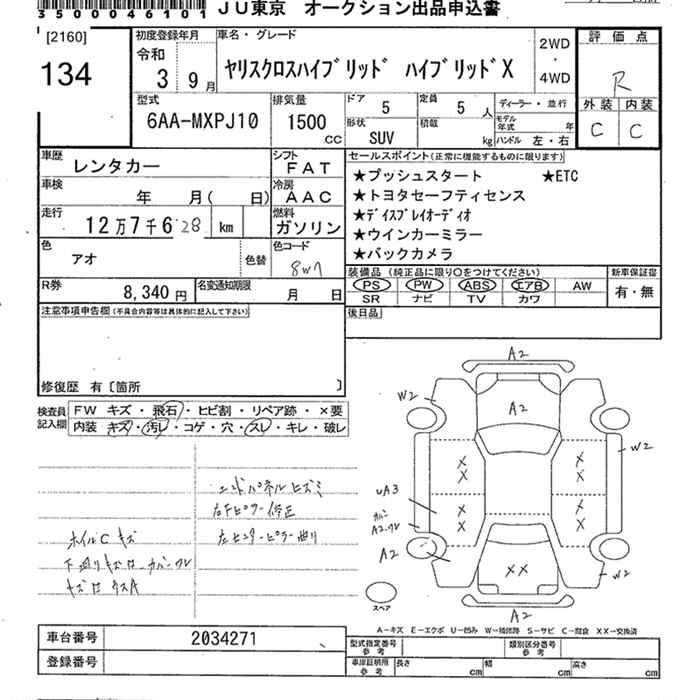 3500046101 JU東京 オークション出品申込書
[2160]
134
初度登録年月
令和
3 9月
車名・グレード
ヤリスクロスハイブリッド ハイブリッドX
2WD
・
4WD
評価点
R
外装 内装
C C
型式
6AA-MXPJ10
排気量
1500
CC
ドア
5
定員
5 人
形状
SUV
積載
kg
ディーラー・並行
モデル年式 年
ハンドル 左・右
車歴
レンタカー
シフト
FAT
車検
年 月( 日)
冷房
AAC
走行
12万7千628 km
燃料
ガソリン
色
アオ
色替
色コード
8W7
セールスポイント(正常に機能するものに限ります)
★プッシュスタート ★ETC
★トヨタセーフティセンス
★ディスプレイオーディオ
★ウインカーミラー
★バックカメラ
R券
8,340 円
名変通知期限
月 日
装備品(純正品に限り○をつけてください)
PS PW ABS エアB AW
SR ナビ TV カワ
新車保証書
有・無
注意事項申告欄(不具合内容等は具体的に記入して下さい)
後日品
修復歴 有〔箇所 〕
検査員
記入欄
FW キズ・飛石・ヒビ割・リペア跡・×要
内装 キズ・汚レ・コゲ・穴・スレ・キレ・破レ
エンドパネルヒズミ
右Fピラー修正
左センターピラー曲り
ホイルCキズ
下廻りキズ有 カバーワレ
A2
W2
A2
W2
UA3
カバー
A2.ワレ
A2
W2
XX
A2
スペア
A-キズ E-エクボ U-凹み W-補修跡 S-サビ C-腐食 XX-交換済
車台番号
2034271
登録番号
型式指定番号
参考
類別区分番号
参考
車庫証明用
参考
長さ cm
幅 cm
高さ cm